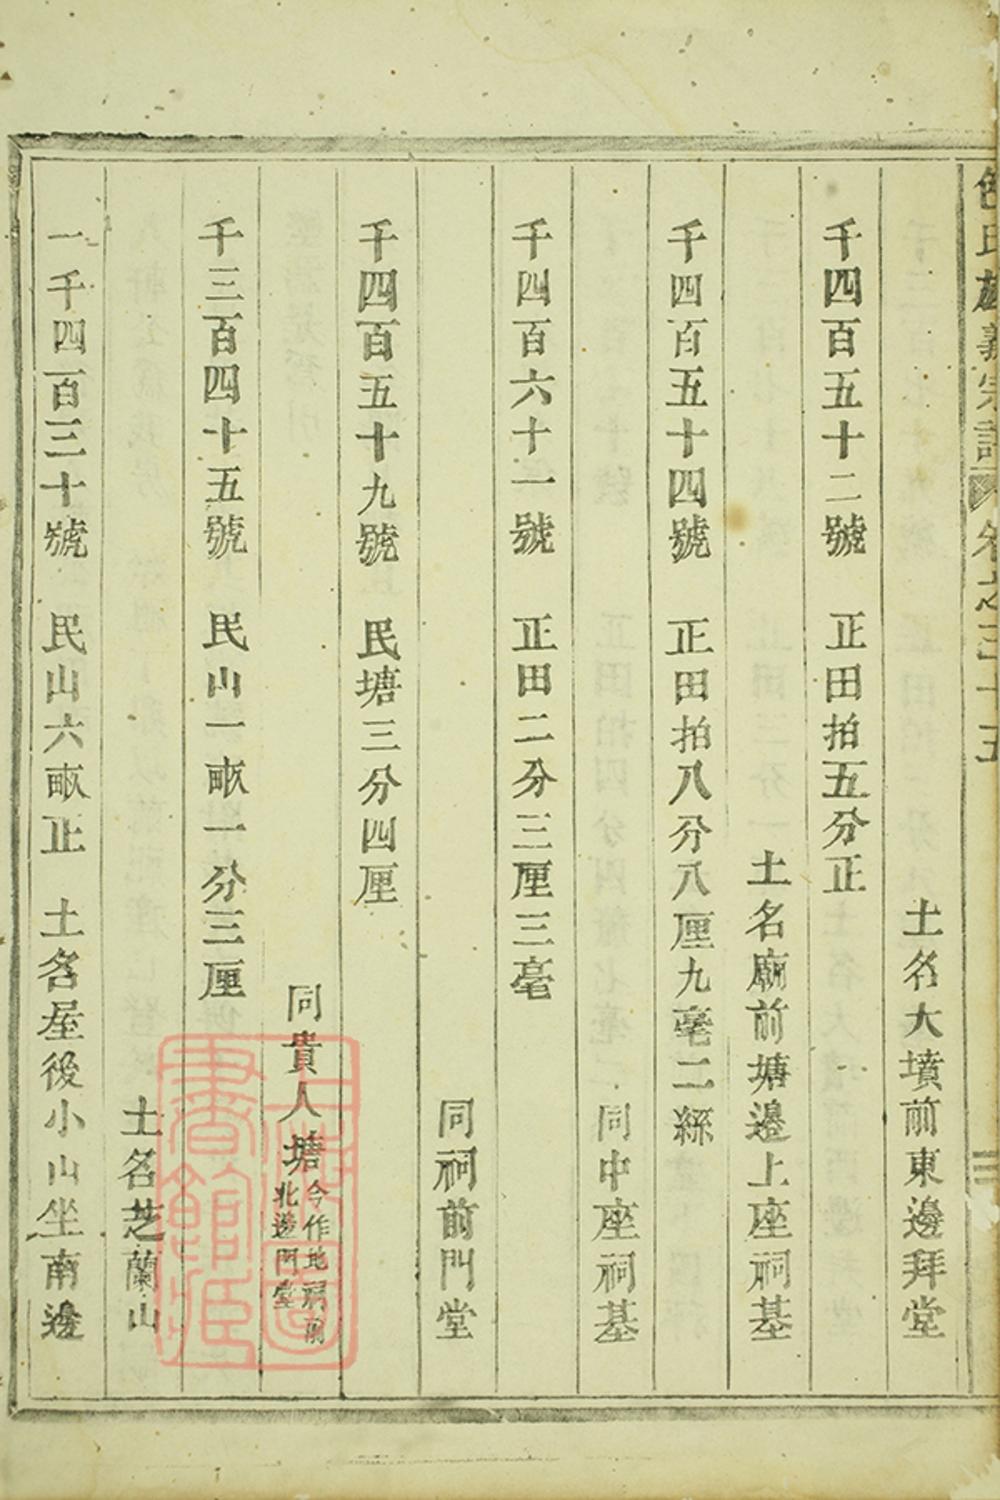 包氏旌義宗譜 卷之三十五
土名大墳前東邊拜堂
千四百五十二號 正田拍五分正
土名廟前塘邊上座祠基
千四百五十四號 正田拍八分八厘九毫二絲
同中座祠基
千四百六十一號 正田二分三厘三毫
同祠前門堂
千四百五十九號 民塘三分四厘
同貴人塘 今作地祠前北邊門堂
千三百四十五號 民山一畝一分三厘
土名芝蘭山
一千四百三十號 民山六畝正 土名屋後小山坐南邊
上海圖書館藏